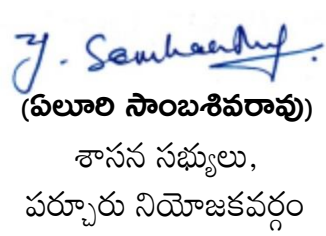 Y. Sambasivarao.
(ఏలూరి సాంబశివరావు)
శాసన సభ్యులు,
పర్చూరు నియోజకవర్గం